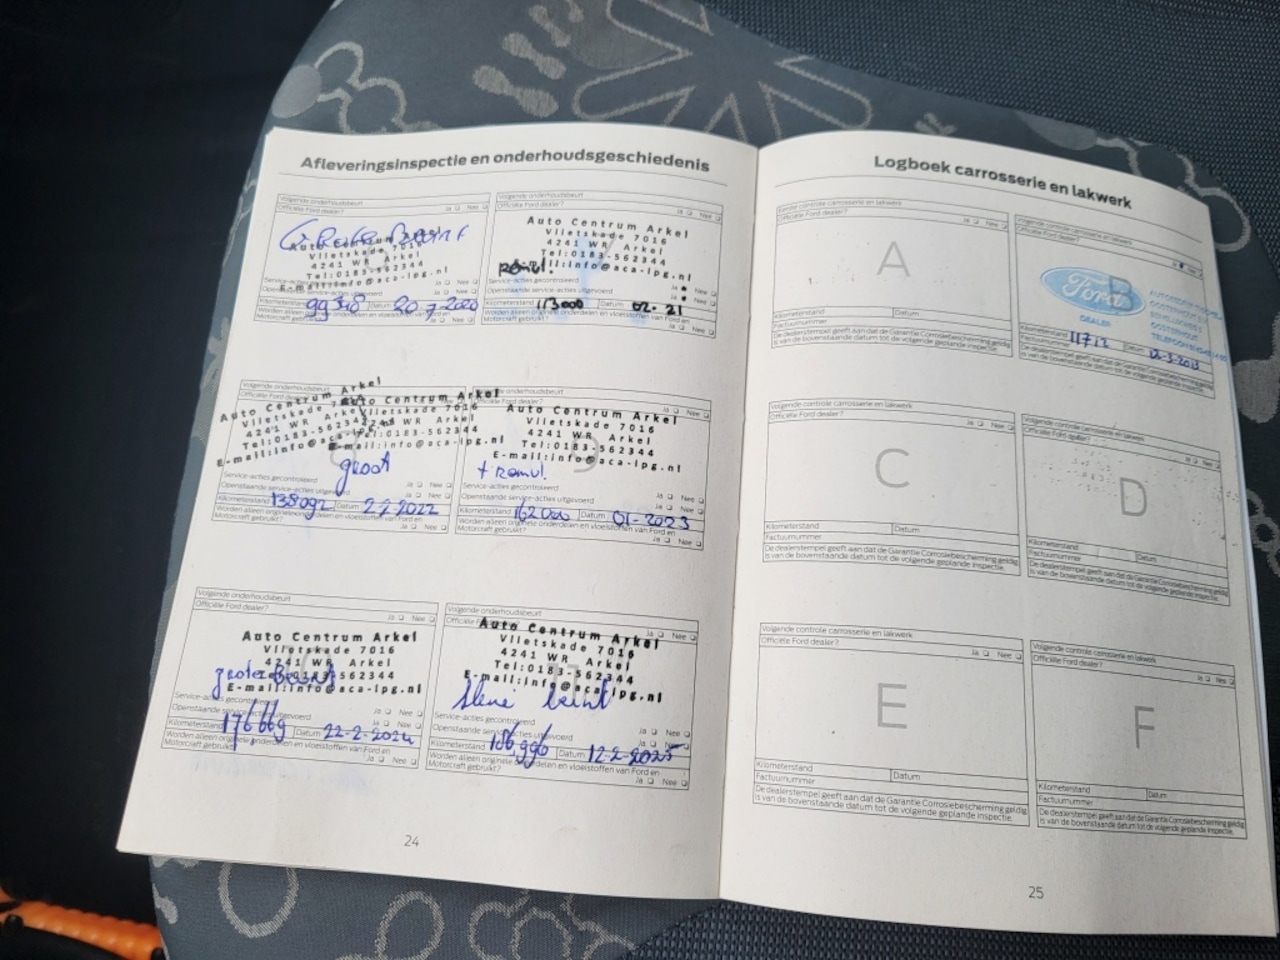 Afleveringsinspectie en onderhoudsgeschiedenis
Volgende onderhoudsbeurt
Officiële Ford dealer? Ja Nee
Auto Centrum Arkel
Vlietskade 7016
4241 WR Arkel
Tel:0183-562344
E-mail:info@aca-lpg.nl
Service-acties gecontroleerd
Openstaande service-acties uitgevoerd
Kilometerstand Datum 20-7-2020
Worden alleen originele onderdelen en vloeistoffen van Ford en
Motorcraft gebruikt? Ja Nee
Volgende onderhoudsbeurt
Officiële Ford dealer? Ja Nee
Auto Centrum Arkel
Vlietskade 7016
4241 WR Arkel
Tel:0183-562344
info@aca-lpg.nl
Service-acties gecontroleerd Ja Nee
Openstaande service-acties uitgevoerd Ja Nee
Kilometerstand 113000 Datum 02-21
Worden alleen originele onderdelen en vloeistoffen van Ford en
Motorcraft gebruikt? Ja Nee
Volgende onderhoudsbeurt
Officiële Ford dealer?
Auto Centrum Arkel
Vlietskade 7016
4241 WR Arkel
Tel:0183-562344
E-mail:info@aca-lpg.nl
groot
Service-acties gecontroleerd Ja Nee
Openstaande service-acties uitgevoerd Ja Nee
Kilometerstand 138092 Datum 22-2022
Worden alleen originele onderdelen en vloeistoffen van Ford en
Motorcraft gebruikt? Ja Nee
Volgende onderhoudsbeurt
Officiële Ford dealer? Ja Nee
Auto Centrum Arkel
Vlietskade 7016
4241 WR Arkel
Tel:0183-562344
E-mail:info@aca-lpg.nl
9
Service-acties gecontroleerd Ja Nee
Openstaande service-acties uitgevoerd Ja Nee
Kilometerstand 162000 Datum 01-2023
Worden alleen originele onderdelen en vloeistoffen van Ford en
Motorcraft gebruikt? Ja Nee
Volgende onderhoudsbeurt
Officiële Ford dealer? Ja Nee
Auto Centrum Arkel
Vlietskade 7016
4241 WR Arkel
Tel:0183-562344
E-mail:info@aca-lpg.nl
grote Beurt
Service-acties gecontroleerd Ja Nee
Openstaande service-acties uitgevoerd Ja Nee
Kilometerstand 176669 Datum 22-2-2024
Worden alleen originele onderdelen en vloeistoffen van Ford en
Motorcraft gebruikt? Ja Nee
Volgende onderhoudsbeurt
Officiële Ford dealer? Ja Nee
Auto Centrum Arkel
Vlietskade 7016
4241 WR Arkel
Tel:0183-562344
E-mail:info@aca-lpg.nl
beurt
Service-acties gecontroleerd Ja Nee
Openstaande service-acties uitgevoerd Ja Nee
Kilometerstand 186,996 Datum 12-2-2025
Worden alleen originele onderdelen en vloeistoffen van Ford en
Motorcraft gebruikt? Ja Nee
24
Logboek carrosserie en lakwerk
Eerste controle carrosserie en lakwerk
Officiële Ford dealer? Ja Nee
A
Kilometerstand Datum
Factuurnummer
De dealerstempel geeft aan dat de Garantie Corrosiebescherming geldig
is van de bovenstaande datum tot de volgende geplande inspectie.
Volgende controle carrosserie en lakwerk
Officiële Ford dealer? Ja Nee
Ford
B
DEALER
OOSTERHOUT
Kilometerstand 11712 Datum
Factuurnummer
De dealerstempel geeft aan dat de Garantie Corrosiebescherming geldig
is van de bovenstaande datum tot de volgende geplande inspectie.
Volgende controle carrosserie en lakwerk
Officiële Ford dealer? Ja Nee
C
Kilometerstand Datum
Factuurnummer
De dealerstempel geeft aan dat de Garantie Corrosiebescherming geldig
is van de bovenstaande datum tot de volgende geplande inspectie.
Volgende controle carrosserie en lakwerk
Officiële Ford dealer? Ja Nee
D
Kilometerstand Datum
Factuurnummer
De dealerstempel geeft aan dat de Garantie Corrosiebescherming geldig
is van de bovenstaande datum tot de volgende geplande inspectie.
Volgende controle carrosserie en lakwerk
Officiële Ford dealer? Ja Nee
E
Kilometerstand Datum
Factuurnummer
De dealerstempel geeft aan dat de Garantie Corrosiebescherming geldig
is van de bovenstaande datum tot de volgende geplande inspectie.
Volgende controle carrosserie en lakwerk
Officiële Ford dealer? Ja Nee
F
Kilometerstand Datum
Factuurnummer
De dealerstempel geeft aan dat de Garantie Corrosiebescherming geldig
is van de bovenstaande datum tot de volgende geplande inspectie.
25